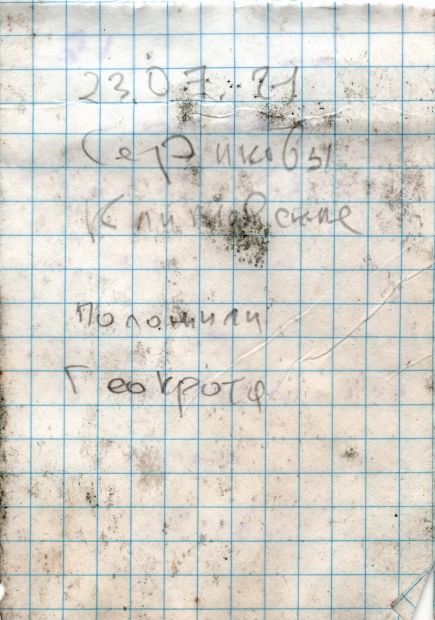 23.07.21
Сериковы
Климовские
положили
Геокрота